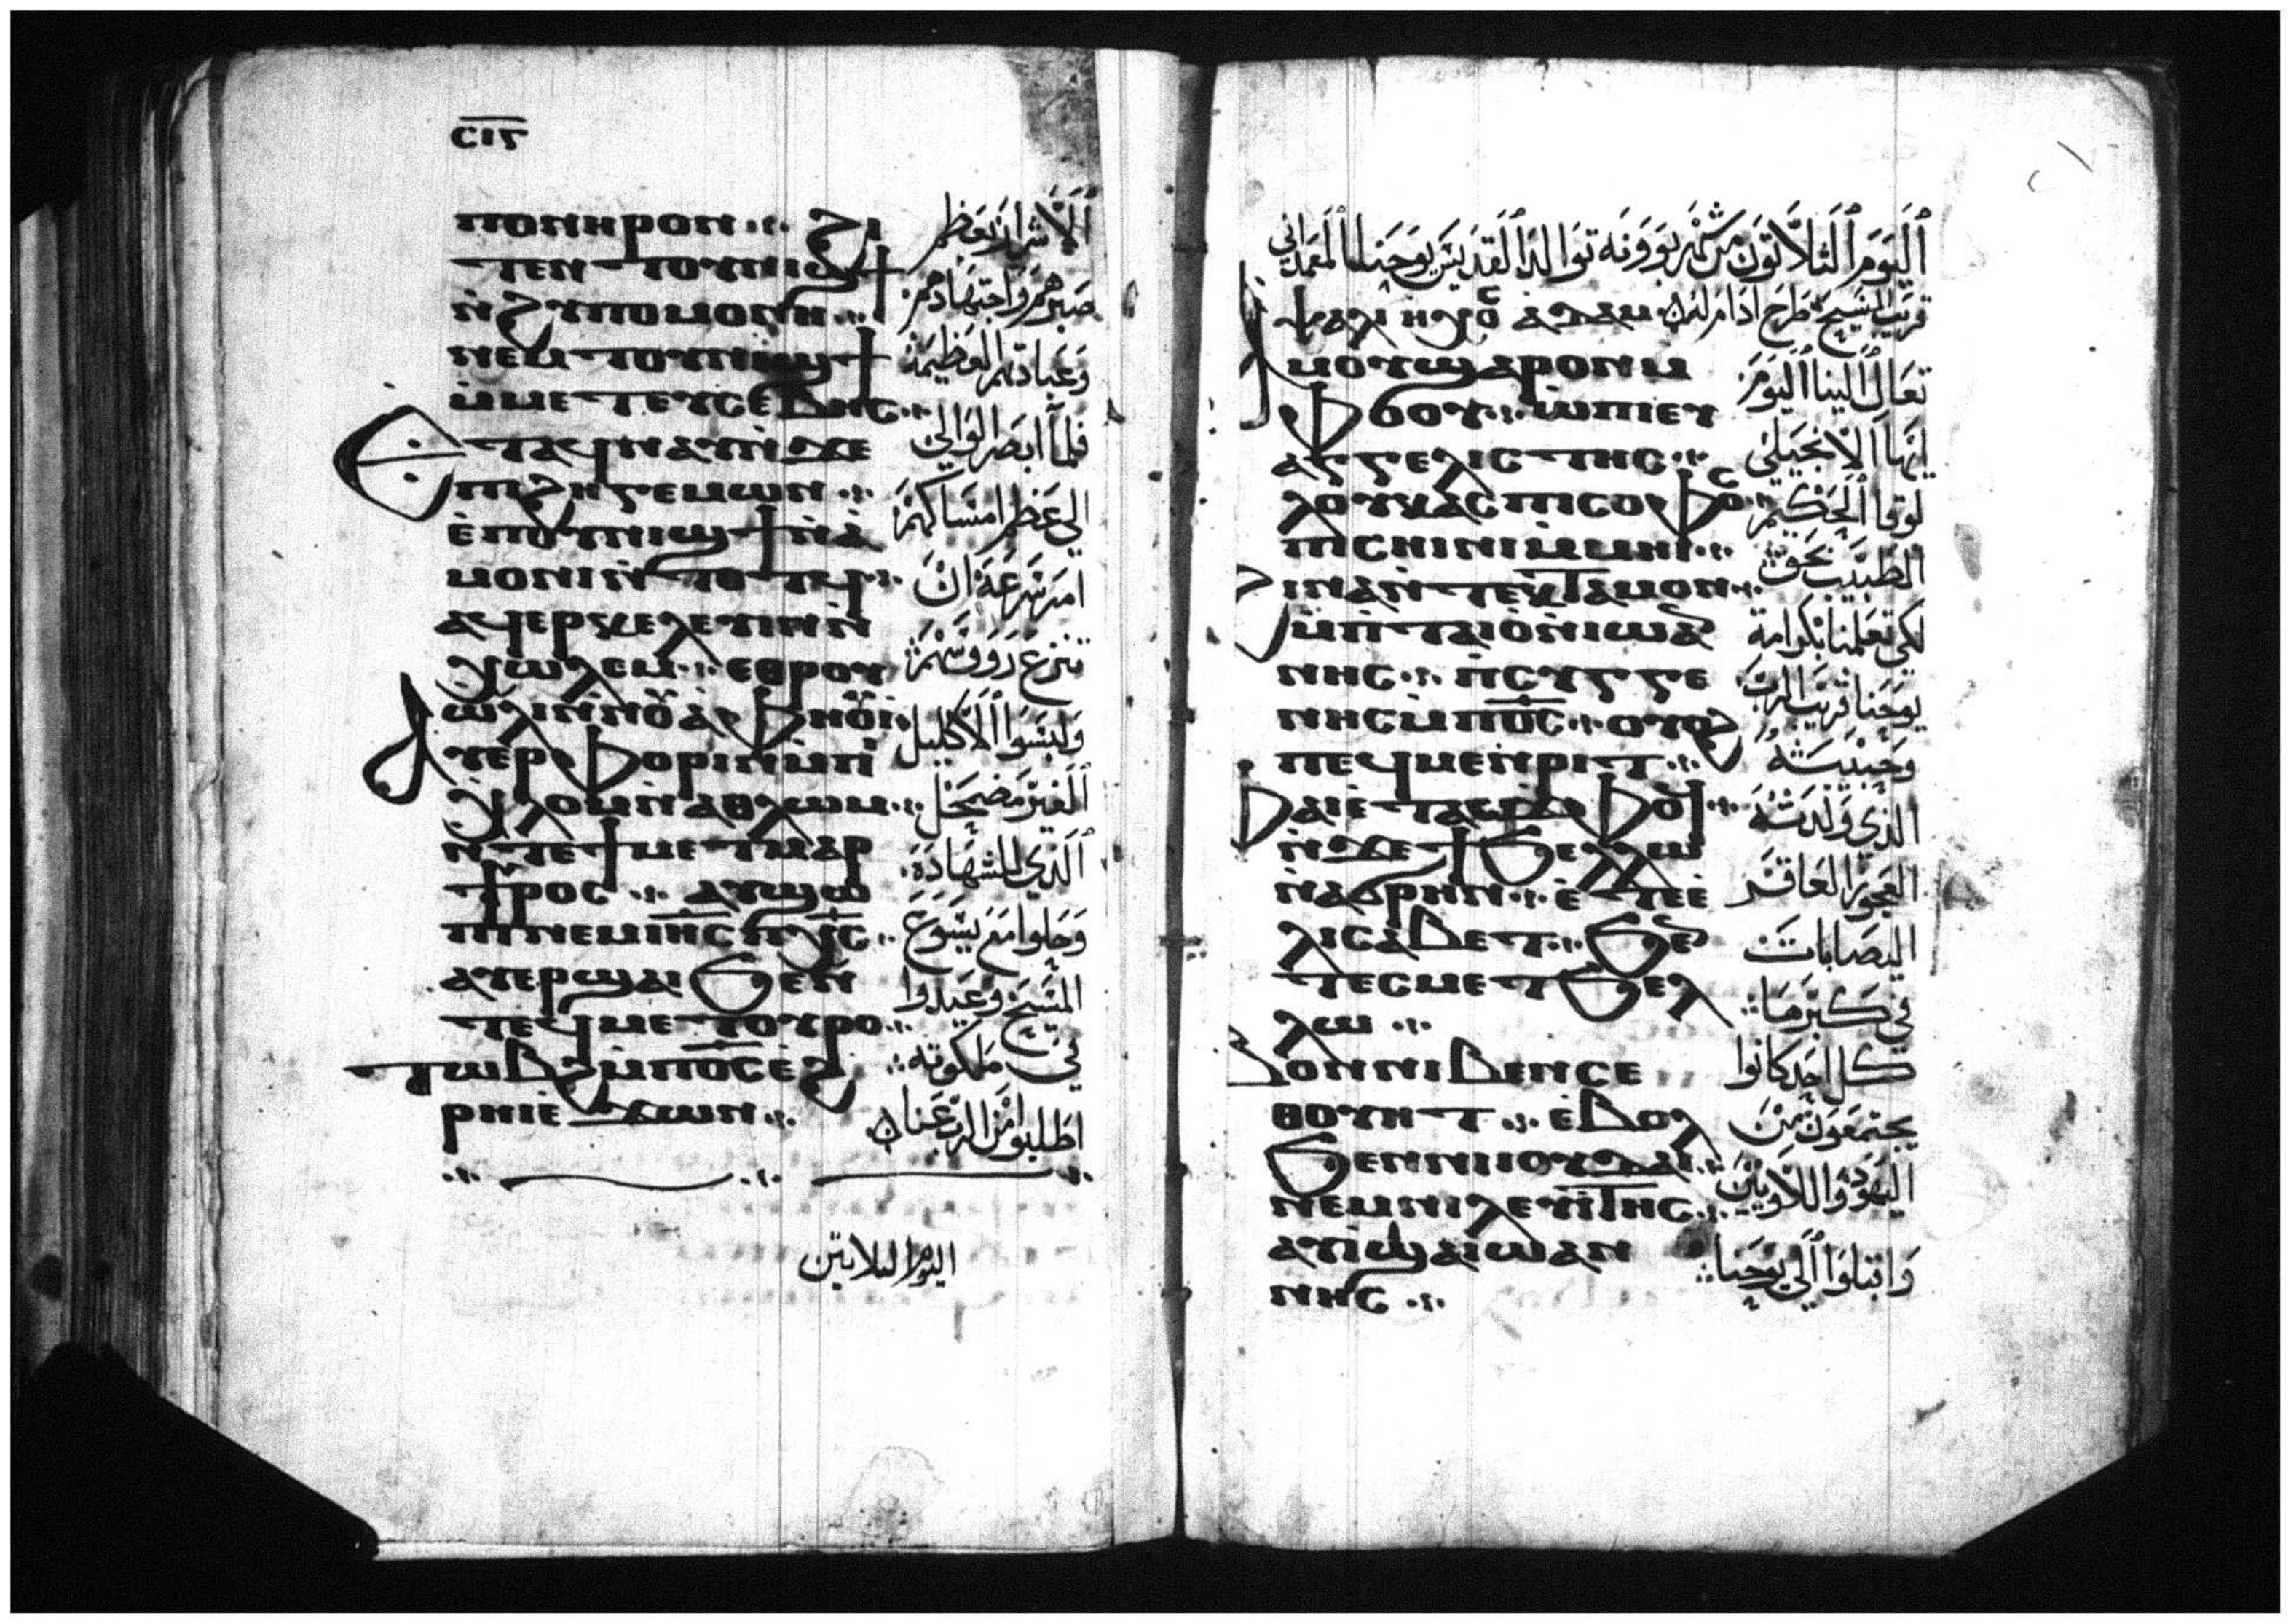 ⲥⲓⲍ
ⲡⲟⲛⲏⲣⲟⲛ ϩⲓ
ⲧⲉⲛ ⲧⲟⲩⲛⲓϣϯ
ⲛ̀ϩⲩⲡⲟⲙⲟⲛⲏ
ⲛⲉⲙ ⲧⲟⲩⲛⲓϣϯ
ⲙ̀ⲙⲉⲧⲉⲩⲥⲉⲃⲏⲥ
Ⲉⲧⲁϥⲛⲁⲩ ⲛ̀ϫⲉ
ⲡⲓϩⲏⲅⲉⲙⲱⲛ
ⲉ̀ⲡⲟⲩⲛⲓϣϯ ⲛ̀ⲁ̀
ⲙⲟⲛⲓⲛ ⲧⲟⲧϥ
ⲁϥⲉⲣⲕⲉⲗⲉⲩⲓⲛ ⲛ̀
ⲭⲱⲗⲉⲙ ⲉⲑⲣⲟⲩ
ⲱⲗⲓ ⲛ̀ⲛⲟⲩⲁ̀ⲫⲏⲟⲩⲓ̀
Ⲁⲩⲉⲣⲫⲟⲣⲓⲛ ⲙ̀ⲡⲓ
ⲭⲗⲟⲙ ⲛ̀ⲁⲑⲗⲱⲙ
ⲛ̀ⲧⲉ ϯⲙⲉⲧⲙⲁⲣ
ⲧⲩⲣⲟⲥ ⲁⲩϣⲱ
ⲡⲓ ⲛⲉⲙ ⲓⲏⲥ ⲡⲭⲥ
ⲁⲩⲉⲣϣⲁⲓ ϧⲉⲛ
ⲧⲉϥⲙⲉⲧⲟⲩⲣⲟ
ⲧⲱⲃϩ ⲙ̀ⲡⲟⲥ ⲉϩ
ⲣⲏⲓ ⲉ̀ϫⲱⲛ
الاشرار بعظم
صبرهم واجتهادهم
وعبادتهم العظيمة
فلما ابصر الوالي
الي عظم امساكهم
امر سرعة ان
تنزع رووسهم
ولبسوا الاكليل
الغير مضمحل
الذي للشهادة
وحلوا مع يسوع
المسيح وعيدوا
في ملكوته
اطلبوا من الرب عنا
اليوم الثلاثين
اليوم الثلاثون من شهر بوونه تواليدا القديس يوحنا المعمداني
قريب المسيح طرح ادام
ⲯⲁⲗⲓ ⲏⲭⲟⲥ ⲁⲇⲁⲙ
Ⲁⲙⲟⲩ ϣⲁⲣⲟⲛ ⲙ
ⲫⲟⲟⲩ ⲱ ⲡⲓⲉⲩ
ⲁⲅⲅⲉⲗⲓⲥⲧⲏⲥ
ⲗⲟⲩⲕⲁⲥ ⲡⲓⲥⲟⲫⲟⲥ
ⲡⲓⲥⲏⲓⲛⲓ ⲙ̀ⲙⲏⲓ
Ϩⲓⲛⲁ ⲛ̀ⲧⲉⲕⲧⲁⲙⲟⲛ
ⲙ̀ⲡⲧⲁⲓⲟ ⲛ̀ⲓⲱⲁ
ⲛⲏⲥ ⲡⲥⲩⲅⲅⲉ
ⲛⲏⲥ ⲙ̀ⲡⲟⲥ ⲟⲩⲟϩ
ⲡⲉϥⲙⲉⲛⲣⲓⲧ
Ⲫⲁⲓ ⲉ̀ⲧⲁⲥⲙ̀ⲫⲟϥ
ⲛ̀ϫⲉ ϯϧⲉⲗⲗⲱ
ⲛ̀ⲁϭⲣⲏⲛ ⲉ̀ⲧⲉ ⲉ̀
ⲗⲓⲥⲁⲃⲉⲧ ϧⲉⲛ
ⲧⲉⲥⲙⲉⲧϧⲉⲗ
ⲗⲱ
Ⲃⲟⲛ ⲛⲓⲃⲉⲛ ⲥⲉ
ⲑⲟⲩⲏⲧ ⲉ̀ⲃⲟⲗ
ϧⲉⲛ ⲛⲓⲓⲟⲩⲇⲁⲓ
ⲛⲉⲙ ⲛⲓⲗⲉⲩⲓⲧⲏⲥ
ⲁⲩⲓ̀ ϣⲁ ⲓⲱⲁⲛ
ⲛⲏⲥ
تعال الينا اليوم
ايها الانجيلي
لوقا الحكيم
الطبيب بحق
لكي تعلمنا بكرامة
يوحنا قريب الرب
وحبيبه
الذي ولدته
العجوز العاقر
اليصابات
في كبرها
كل احد كانوا
يجتمعون من
اليهود واللاويين
واقبلوا الي يوحنا